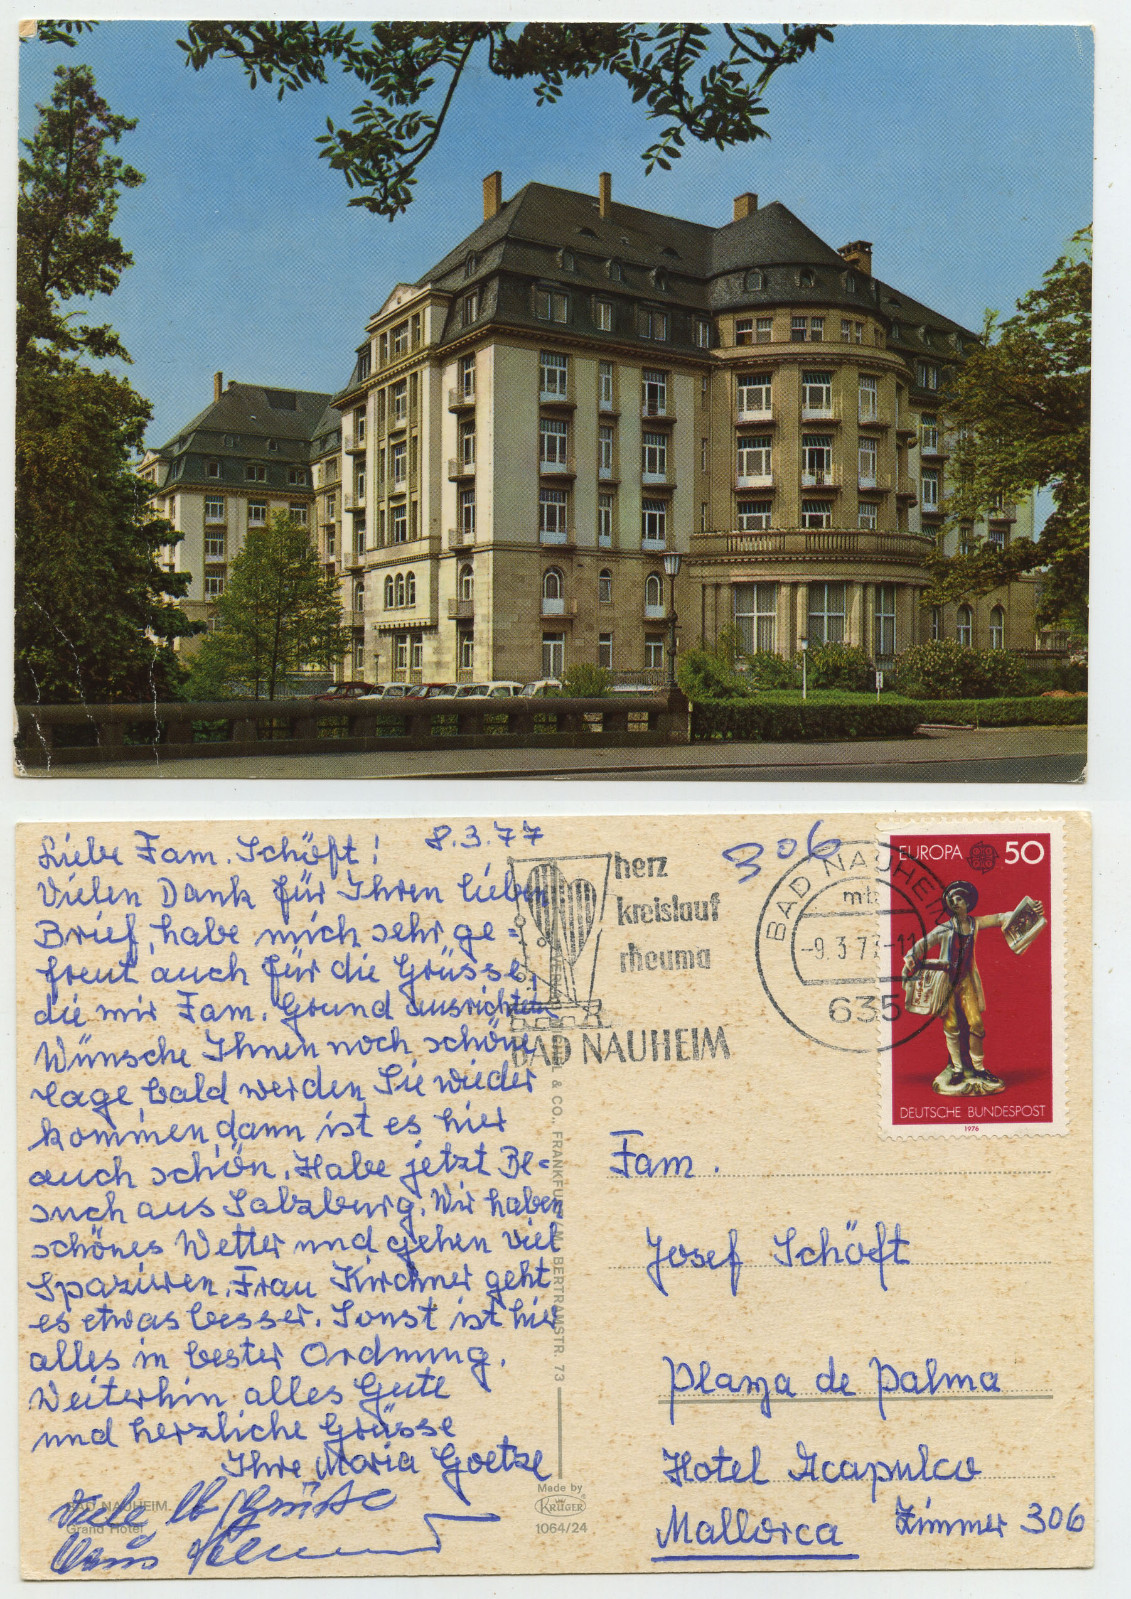 Liebe Fam. Schöft! 8.3.77
Vielen Dank für Ihren lieben
Brief, habe mich sehr ge=
freut auch für die Grüsse,
die mir Fam. Grund ausrichteten
Wünsche Ihnen noch schöne
Tage bald werden Sie wieder
kommen, dann ist es hier
auch schön. Habe jetzt Be=
such aus Salzburg. Wir haben
schönes Wetter und gehen viel
Spazieren. Frau Kirchner geht
es etwas besser. Sonst ist hier
alles in bester Ordnung.
Weiterhin alles Gute
und herzliche Grüsse
Ihre Maria Goetze
Viele lb. Grüsse
BAD NAUHEIM
Grand Hotel
306
herz
kreislauf
rheuma
BAD NAUHEIM
BAD NAUHEIM
mb
-9.3.77-11
635
EUROPA 50
DEUTSCHE BUNDESPOST
1976
& CO., FRANKFURT/M. BERTRAMSTR. 73
Made by
KRÜGER
1064/24
Fam.
Josef Schöft
Playa de Palma
Hotel Acapulco
Mallorca Zimmer 306